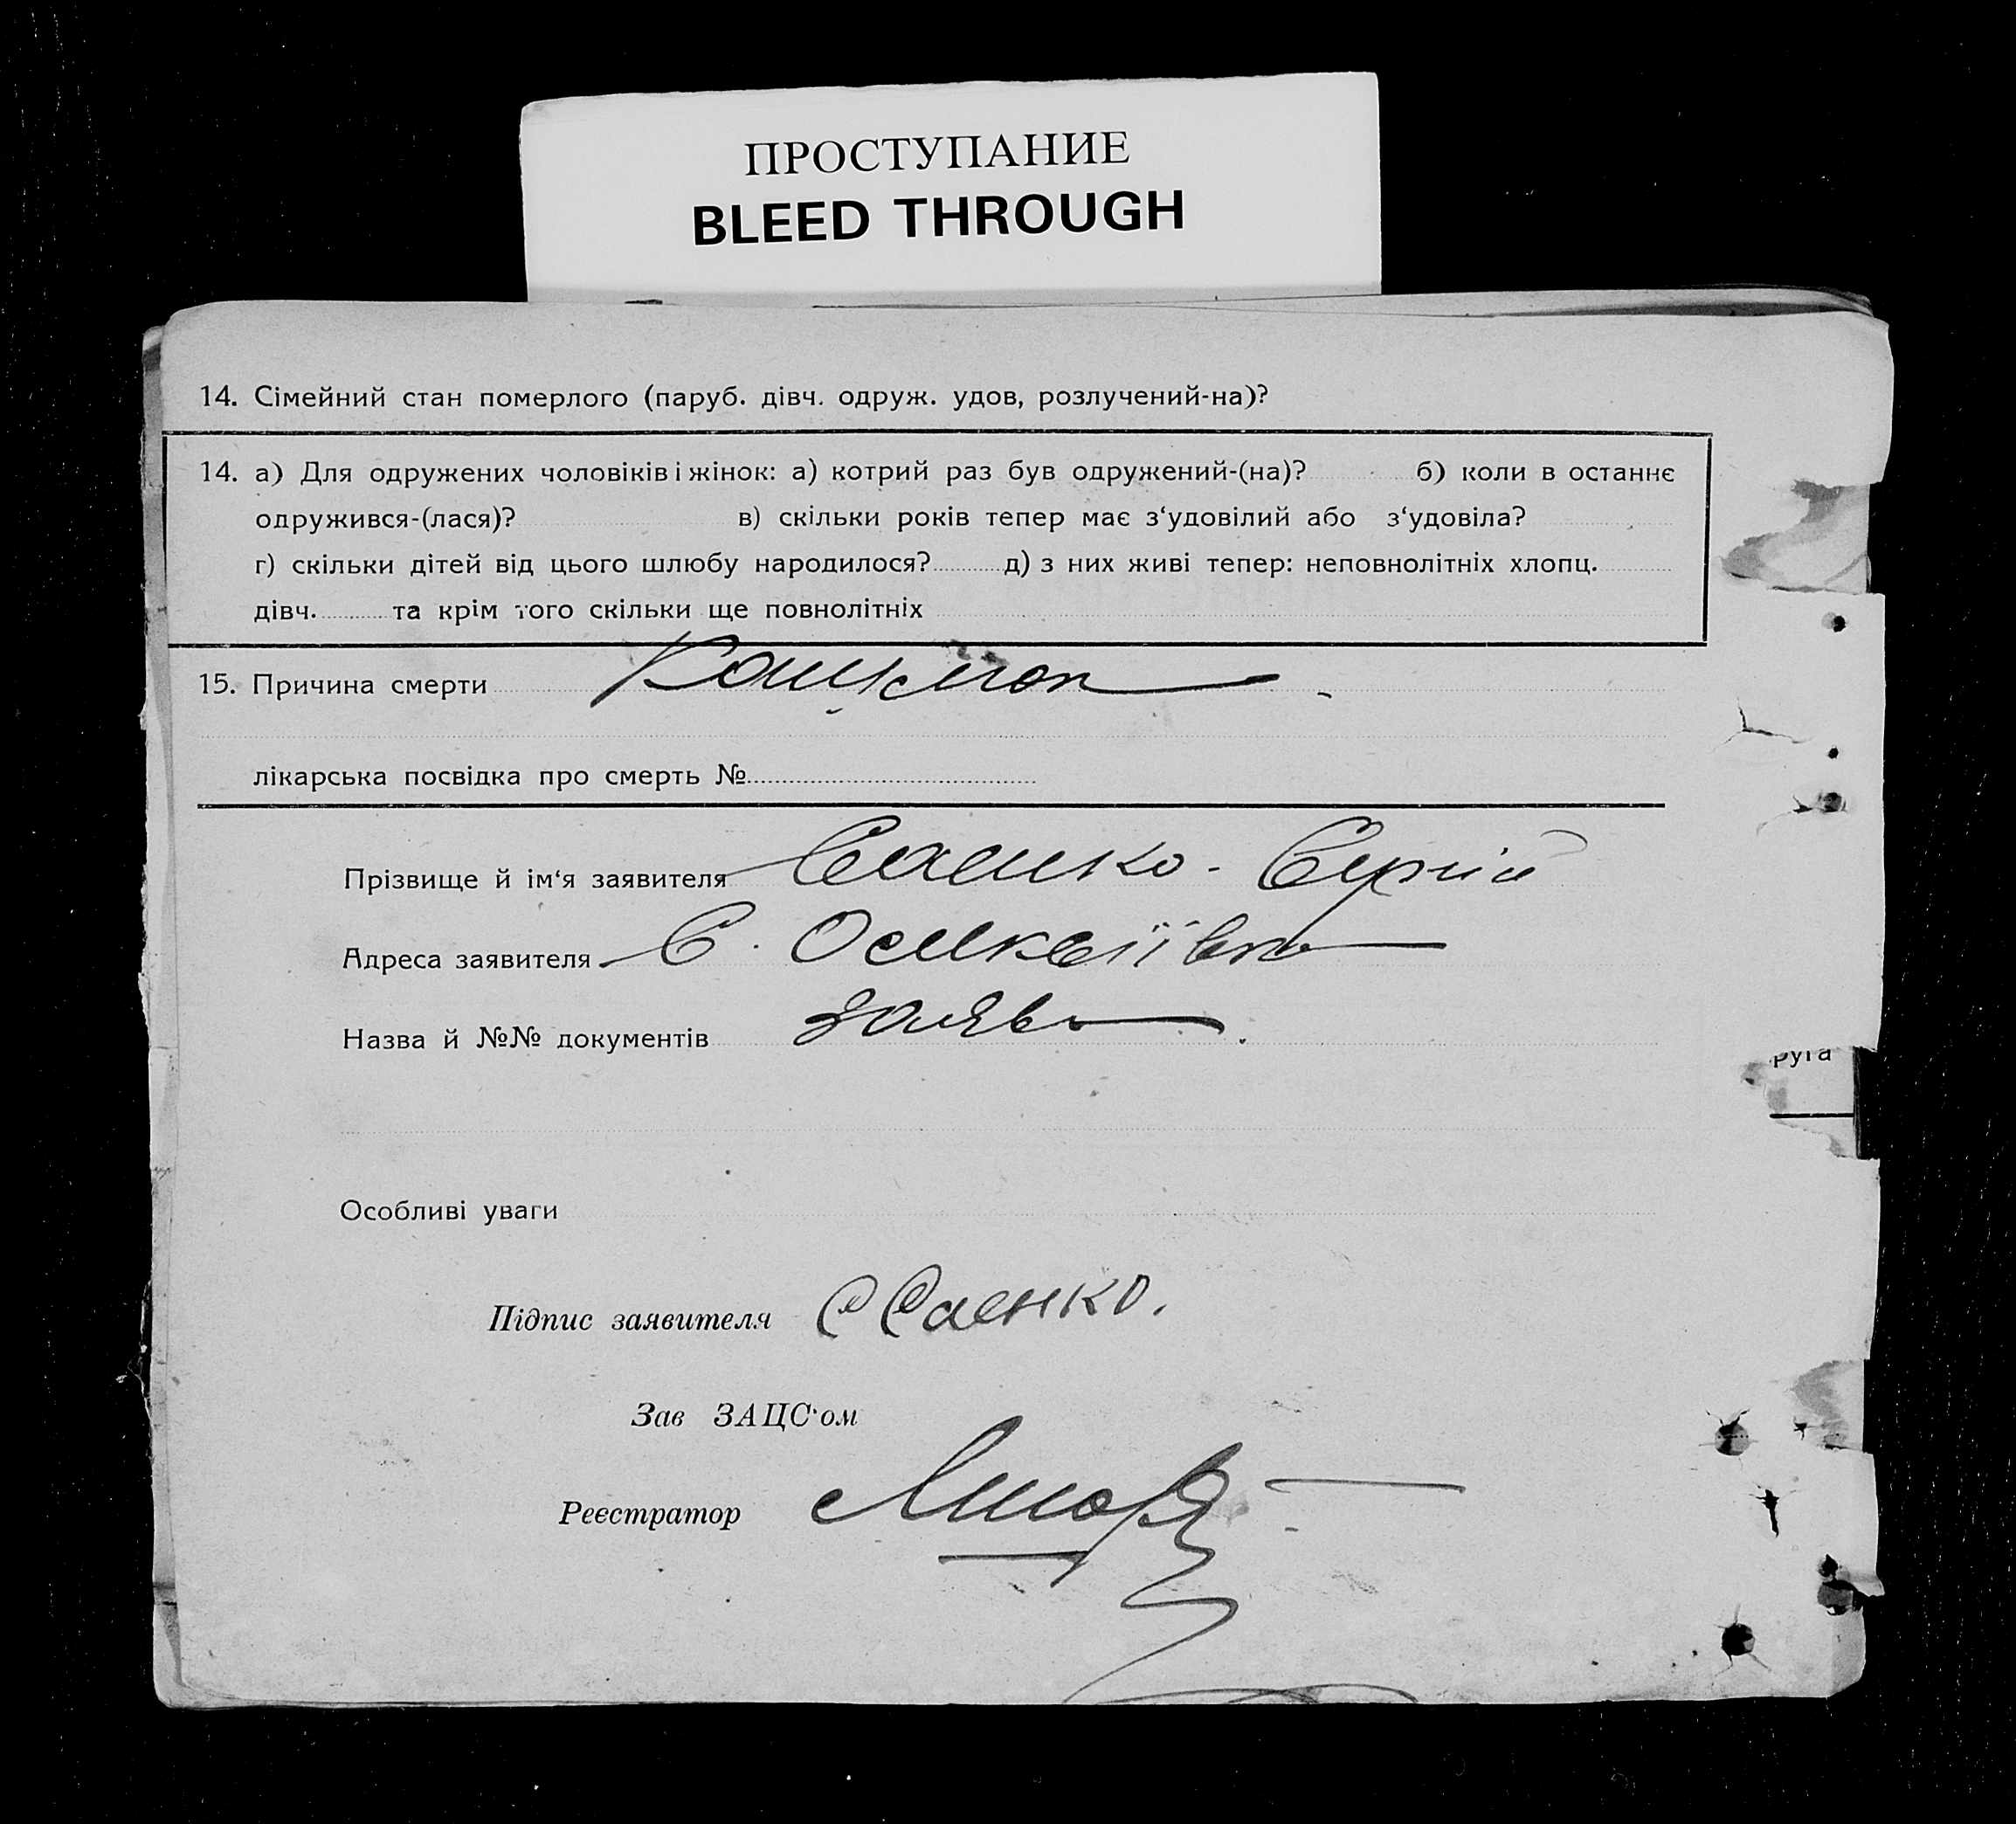 ПРОСТУПАНИЕ
BLEED THROUGH
14. Сімейний стан померлого (паруб. дівч. одруж. удов, розлучений-на)?
14. а) Для одружених чоловіків і жінок: а) котрий раз був одружений-(на)? б) коли в останнє
одружився-(лася)? в) скільки років тепер має з‘удовілий або з‘удовіла?
г) скільки дітей від цього шлюбу народилося? д) з них живі тепер: неповнолітніх хлопц.
дівч. та крім того скільки ще повнолітніх
15. Причина смерти Кашель
лікарська посвідка про смерть №
Прізвище й ім‘я заявителя Саенко Сергій
Адреса заявителя С.
Назва й №№ документів Заява
руга
Особливі уваги
Підпис заявителя С Саенко.
Зав ЗАЦС‘ом
Реєстратор